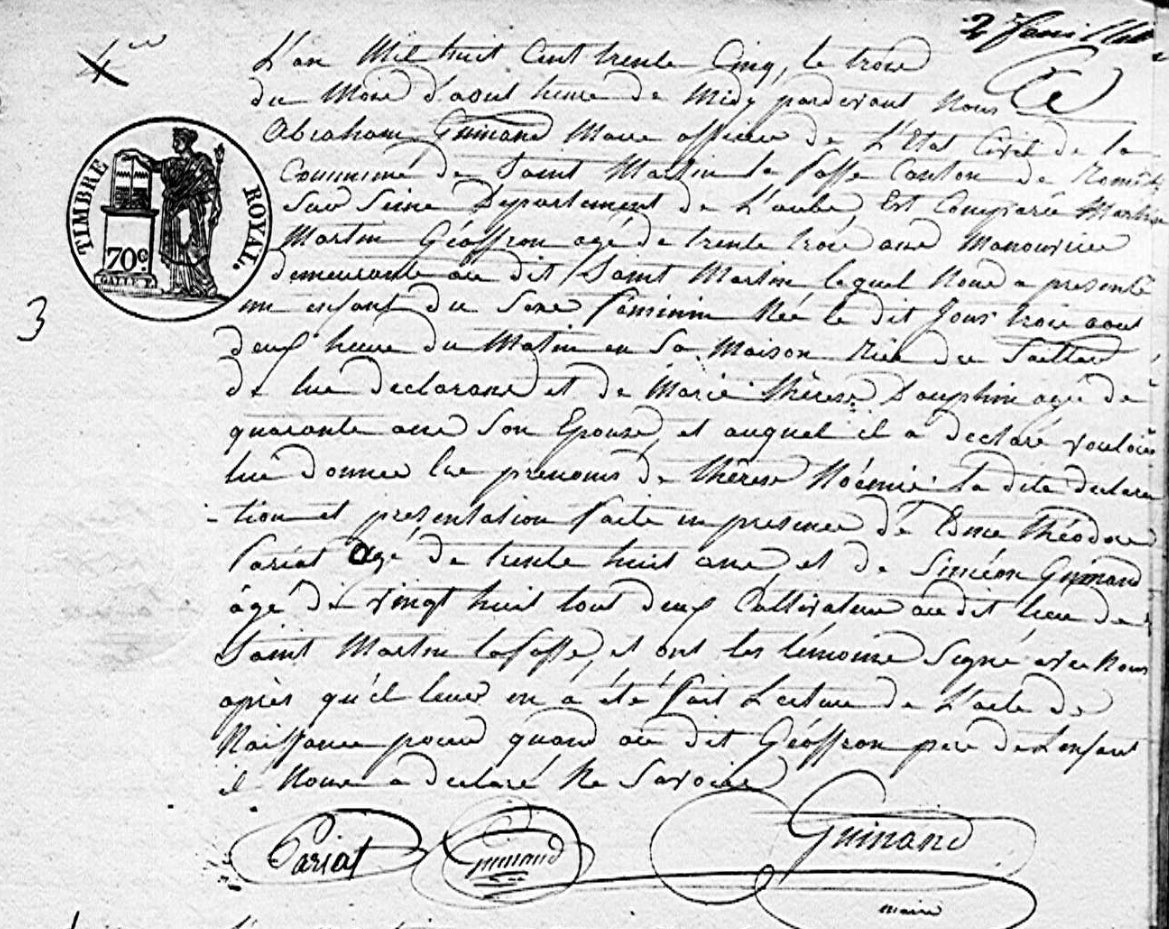 2e Feuillet
4
L'an Mil huit Cent trente Cinq, le trois
du Mois d'aout heure de Midy pardevant Nous
Abraham Guinand Maire officier de L'Etat Civil de la
Commune de Saint Martin la fosse Canton de Romilly
Sur Seine Departement de L'aube, Est Comparu
Martin Géoffron agé de trente trois ans Manouvrier
demeurante au dit Saint Martin lequel Nous a presenté
un enfant du Sexe féminin Née le dit Jour trois aout
deux heure du Matin en Sa Maison Rue du
de lui declarant et de Marie thèrese Dauphin agé de
quarante ans Son Epouse, et auquel il a declaré vouloir
lui donner les prenoms de thèrese Noémie la dite declara
-tion et présentation faite en presence de Edme théodore
Pariat Agé de trente huit ans et de Siméon Guinand
âgé de vingt huit tout deux Cultivateur au dit lieu de
Saint Martin lafosse, et ont les témoins Signé avec Nous
après qu'il leur en à été fait Lecture de L'acte de
Naissance pour quand au dit Géoffron pere de L'enfant
il Nous a declaré Ne Savoir
TIMBRE ROYAL.
70c
3
Pariat Guinand Guinand
maire